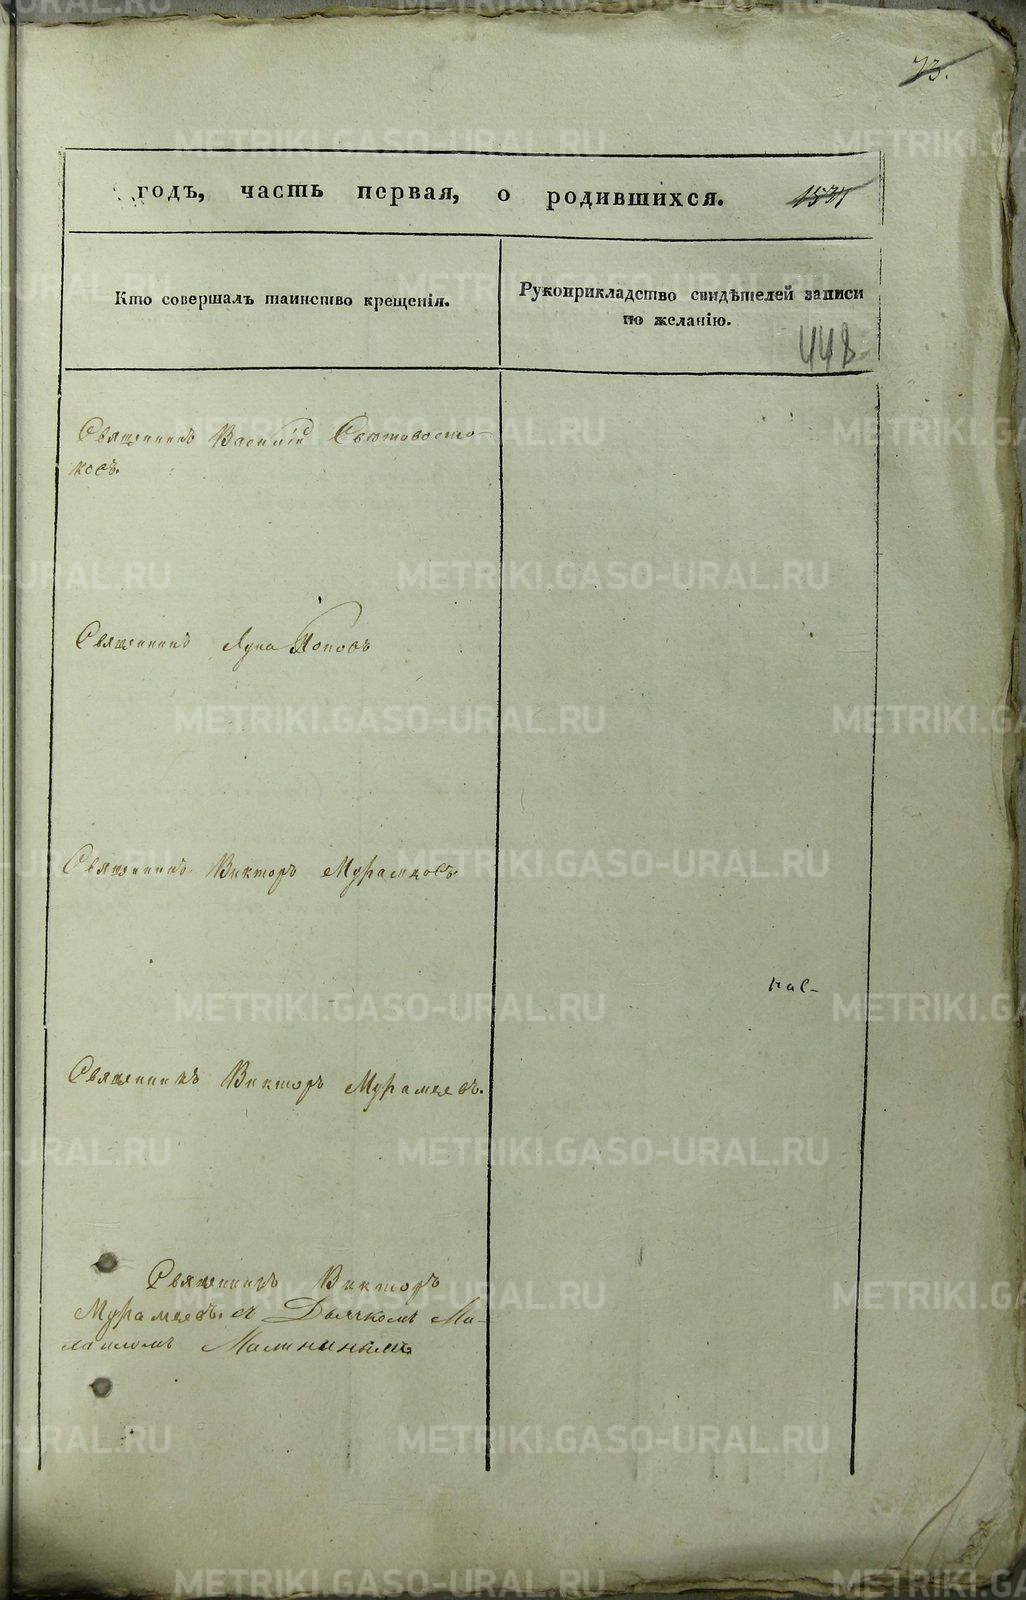 73.
годъ, часть первая, о родившихся.
Кто совершалъ таинство крещенія.
Рукоприкладство свидѣтелей записи
по желанію.
448
Священникъ Василій Свѣтовосто-
ковъ.
Священникъ Лука Поповъ
Священникъ Викторъ
Священникъ Викторъ
Священникъ Викторъ
съ Дьячкомъ Ми-
хаиломъ Малининымъ
METRIKI.GASO-URAL.RU